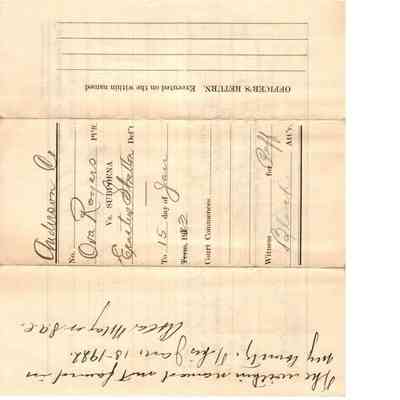 OFFICER'S RETURN. Executed on the within named
Anderson Co
No. PL'FF
Ova Rogers
Vs. SUBPOENA
Shelton Def't
To 15 day of Jan
Term, 192
Court Commences
Witness for Plff
Black Att'y.
The within named not found in
my County. This Jan. 13-1922.